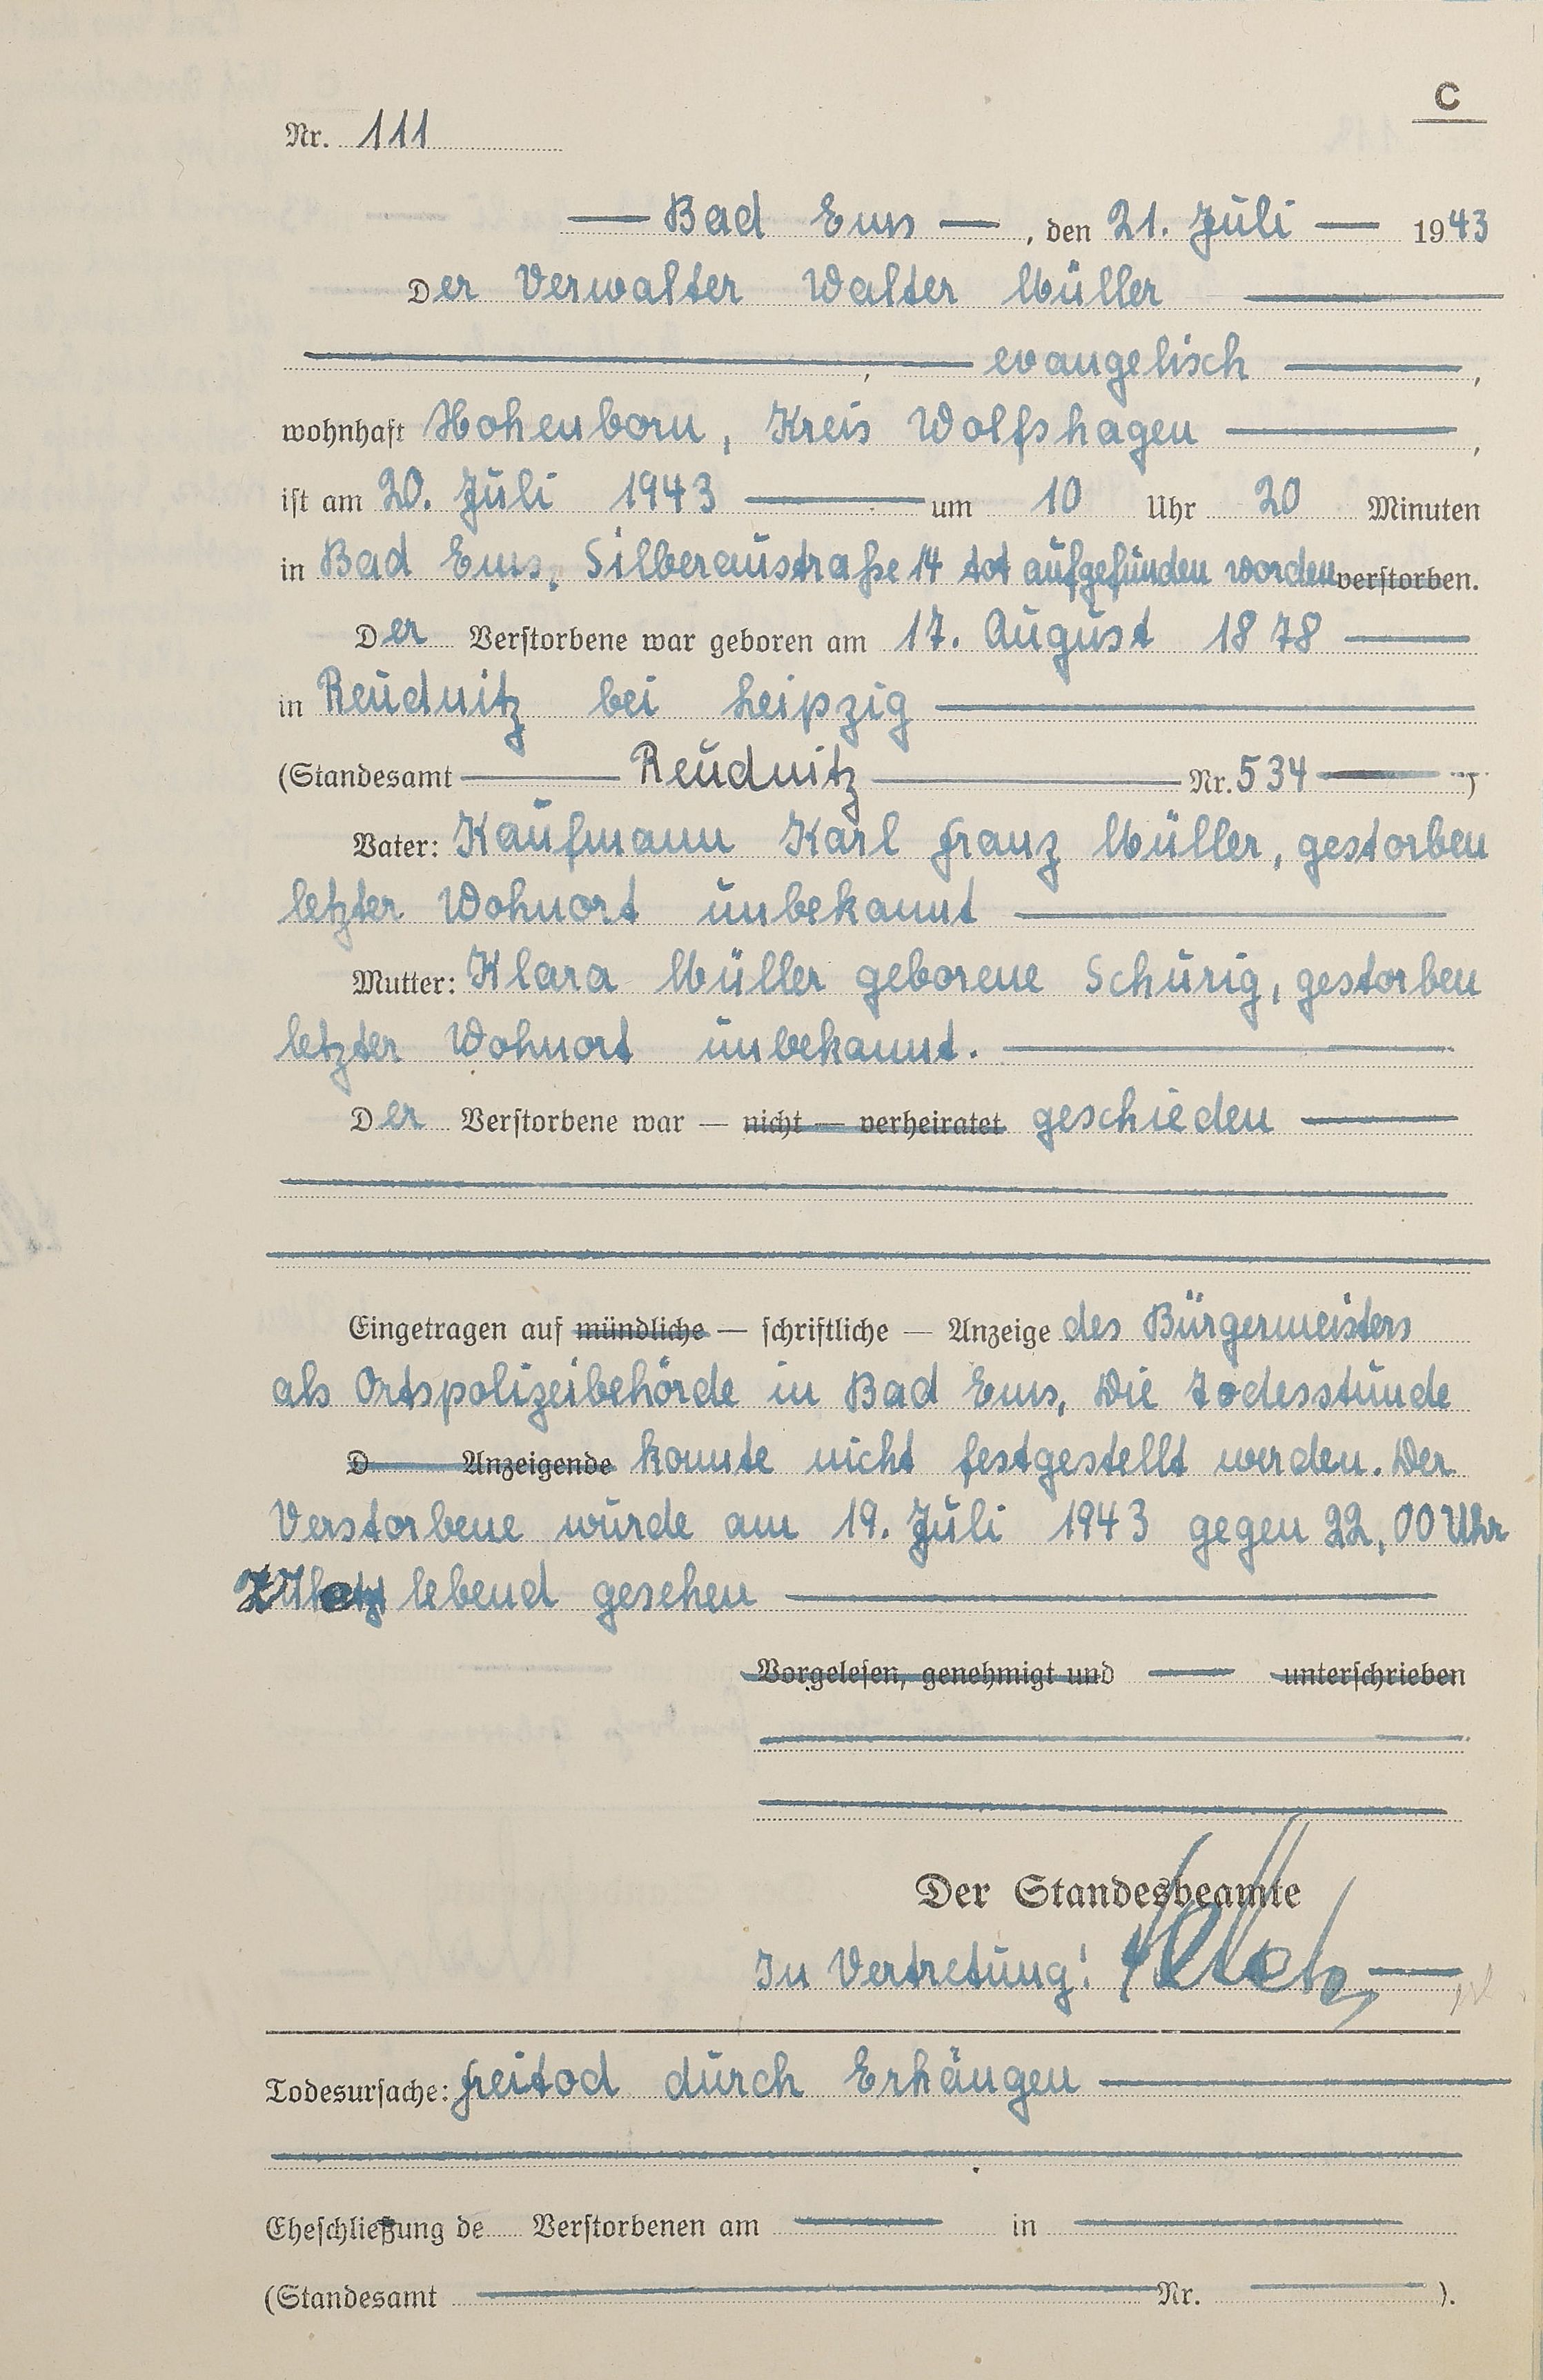 C
Nr. 111
— Bad Ems —, den 21. Juli — 1943
Der Verwalter Walter Müller —
— evangelisch —,
wohnhaft Hohenborn, Kreis Wolfshagen —,
ist am 20. Juli 1943 — um 10 Uhr 20 Minuten
in Bad Ems, Silberaustraße 14 tot aufgefunden worden verstorben.
Der Verstorbene war geboren am 17. August 1878 —
in Reudnitz bei Leipzig —
(Standesamt — Reudnitz — Nr. 534 —)
Vater: Kaufmann Karl Franz Müller, gestorben
letzter Wohnort unbekannt —
Mutter: Klara Müller geborene Schurig, gestorben
letzter Wohnort unbekannt. —
Der Verstorbene war — nicht — verheiratet geschieden —
Eingetragen auf mündliche — schriftliche — Anzeige des Bürgermeisters
als Ortspolizeibehörde in Bad Ems, Die Todesstunde
D Anzeigende konnte nicht festgestellt werden. Der
Verstorbene wurde am 19. Juli 1943 gegen 22,00 Uhr
zuletzt lebend gesehen —
Vorgelesen, genehmigt und — unterschrieben
Der Standesbeamte
In Vertretung!
Todesursache: Freitod durch Erhängen —
Eheschließung de Verstorbenen am — in —
(Standesamt — Nr. — ).